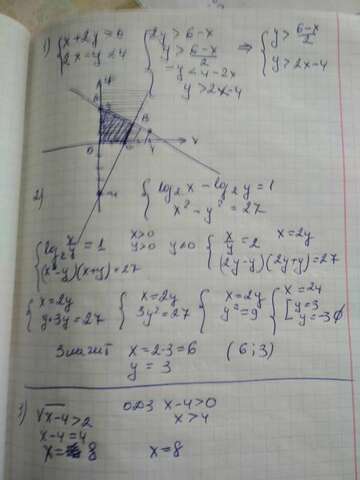 1) { x+2y = 6
2x-y < 4
{ 2y > 6-x
y > (6-x)/2
-y < 4-2x
y > 2x-4
⇒ { y > (6-x)/2
y > 2x-4
y
A
B
O
C
x
-4
2) { log₂x - log₂y = 1
x² - y² = 27
{ log₂ x/y = 1
(x-y)(x+y) = 27
x>0
y>0 y≠0
{ x/y = 2 x=2y
(2y-y)(2y+y) = 27
{ x=2y
y·3y=27
{ x=2y
3y²=27
{ x=2y
y²=9
{ x=2y
[ y=3
y=-3 ∅
Значит x=2·3=6 (6;3)
y = 3
3)
√x-4 > 2
ОДЗ x-4>0
x>4
x-4=4
x= 8 x=8